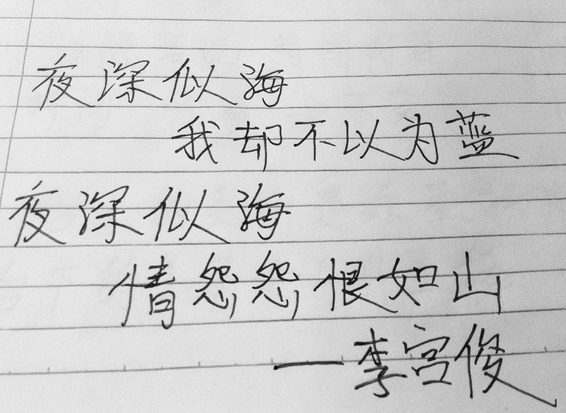 夜深似海
我却不以为蓝
夜深似海
情怨怨恨如山
一李宫俊